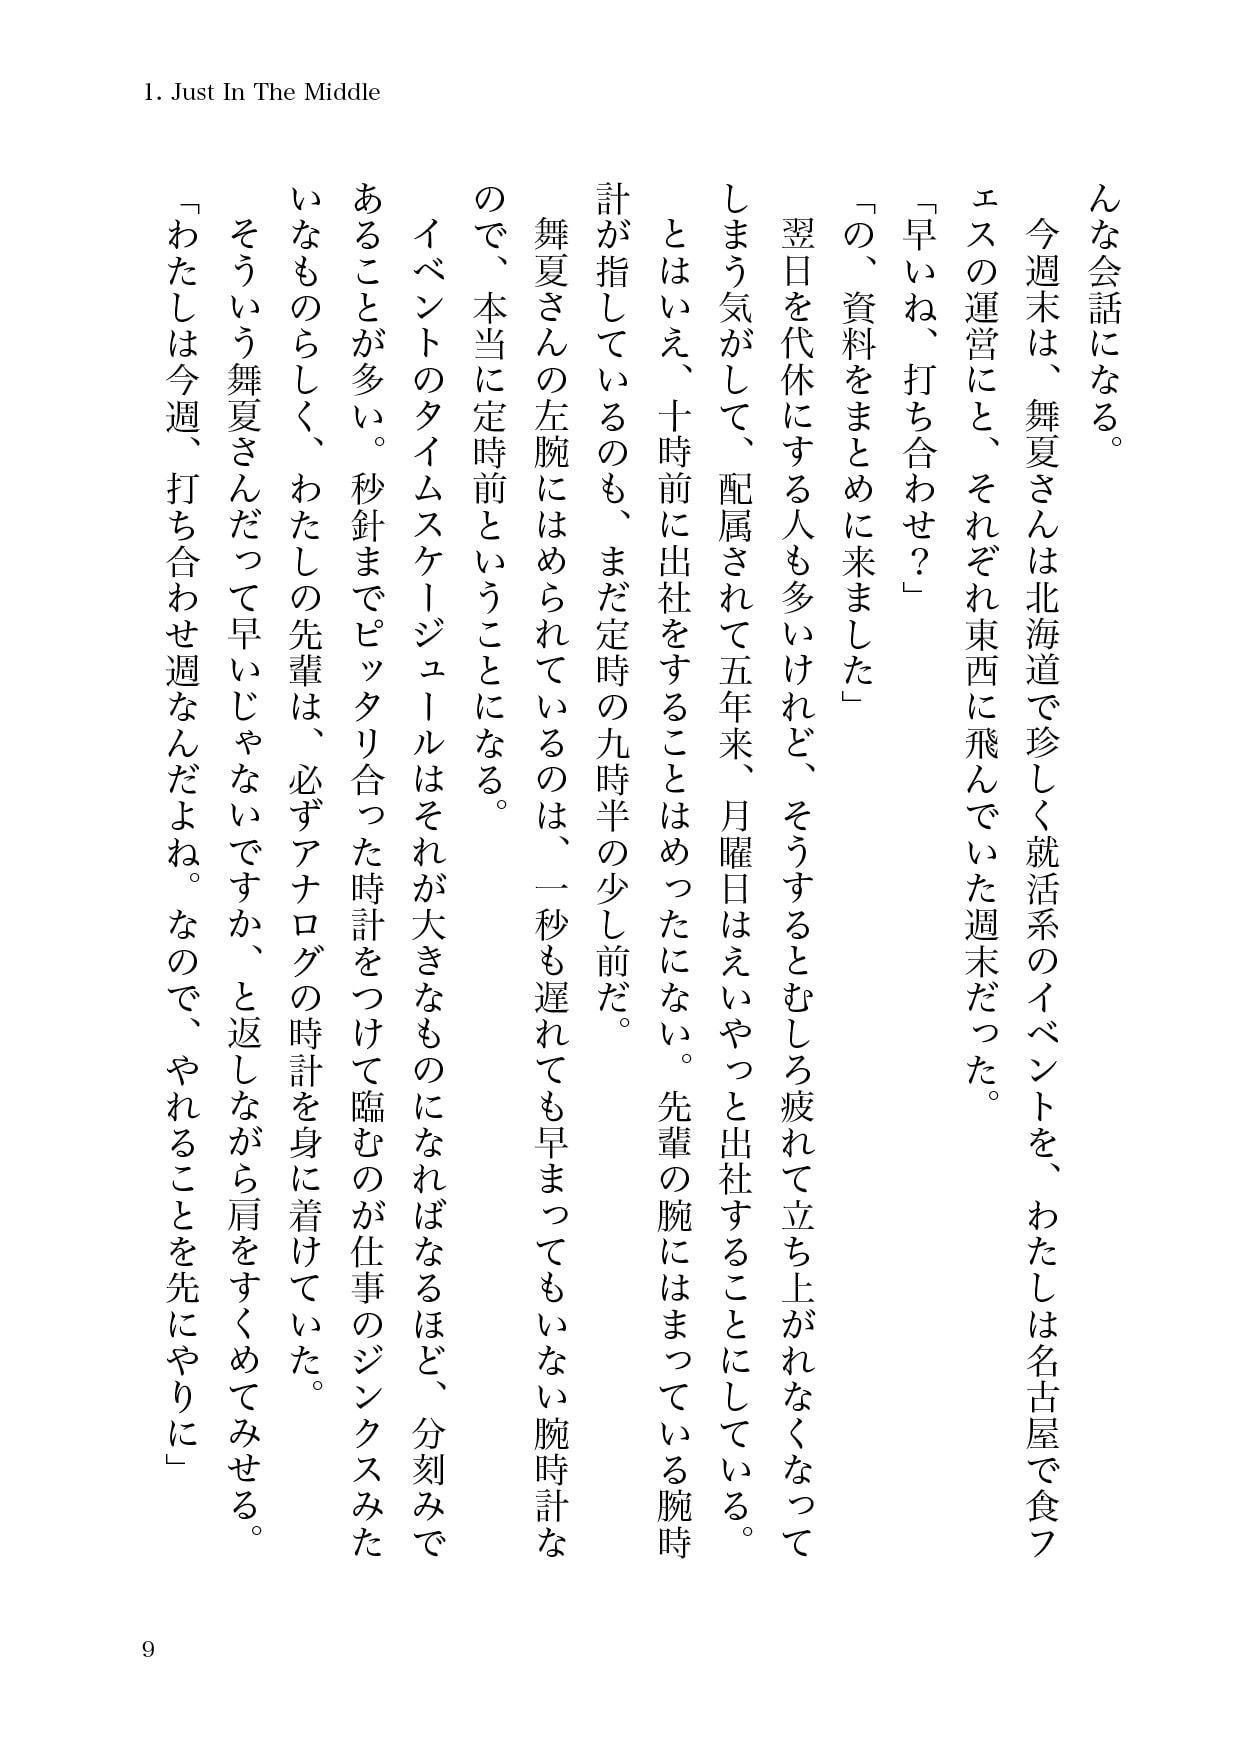 1. Just In The Middle
んな会話になる。
今週末は、舞夏さんは北海道で珍しく就活系のイベントを、わたしは名古屋で食フ
ェスの運営にと、それぞれ東西に飛んでいた週末だった。
「早いね、打ち合わせ？」
「の、資料をまとめに来ました」
翌日を代休にする人も多いけれど、そうするとむしろ疲れて立ち上がれなくなって
しまう気がして、配属されて五年来、月曜日はえいやっと出社することにしている。
とはいえ、十時前に出社をすることはめったにない。先輩の腕にはまっている腕時
計が指しているのも、まだ定時の九時半の少し前だ。
舞夏さんの左腕にはめられているのは、一秒も遅れても早まってもいない腕時計な
ので、本当に定時前ということになる。
イベントのタイムスケージュールはそれが大きなものになればなるほど、分刻みで
あることが多い。秒針までピッタリ合った時計をつけて臨むのが仕事のジンクスみた
いなものらしく、わたしの先輩は、必ずアナログの時計を身に着けていた。
そういう舞夏さんだって早いじゃないですか、と返しながら肩をすくめてみせる。
「わたしは今週、打ち合わせ週なんだよね。なので、やれることを先にやりに」
9